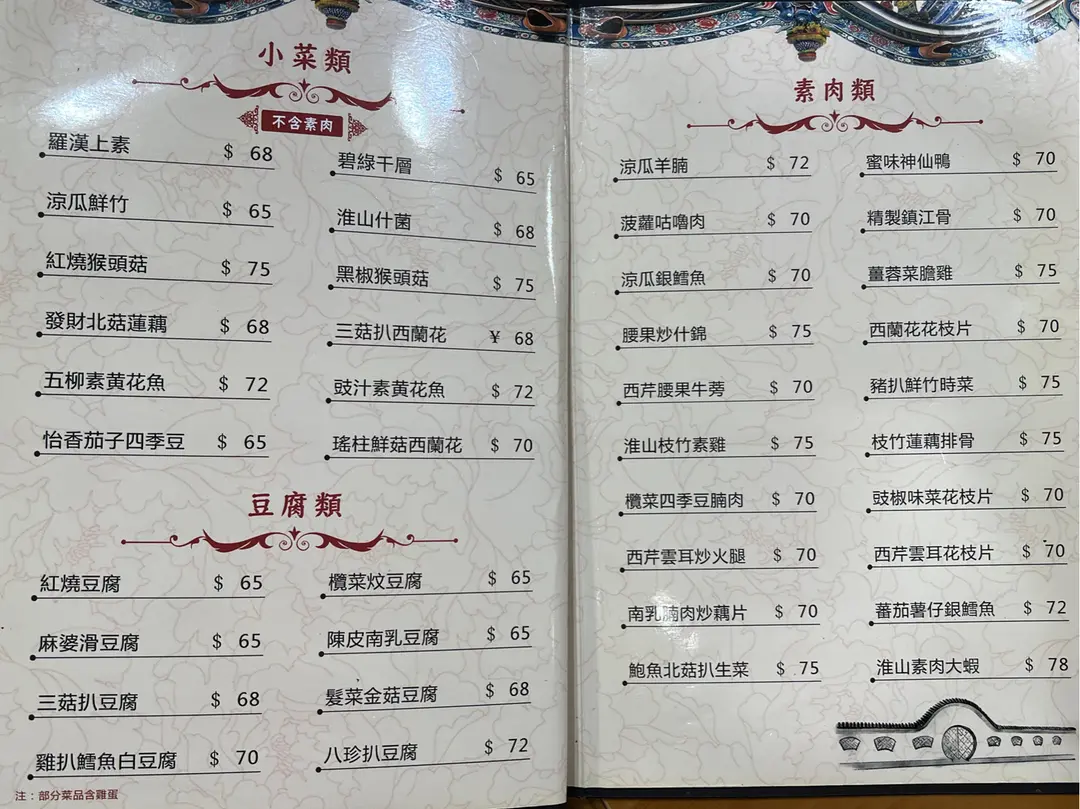 小菜類
不含素肉
羅漢上素 $ 68
涼瓜鮮竹 $ 65
紅燒猴頭菇 $ 75
發財北菇蓮藕 $ 68
五柳素黄花魚 $ 72
怡香茄子四季豆 $ 65
碧綠千層 $ 65
淮山什菌 $ 68
黑椒猴頭菇 $ 75
三菇扒西蘭花 ¥ 68
豉汁素黄花魚 $ 72
瑤柱鮮菇西蘭花 $ 70
豆腐類
紅燒豆腐 $ 65
麻婆滑豆腐 $ 65
三菇扒豆腐 $ 68
雞扒鱈魚白豆腐 $ 70
欖菜炆豆腐 $ 65
陳皮南乳豆腐 $ 65
髮菜金菇豆腐 $ 68
八珍扒豆腐 $ 72
注：部分菜品含雞蛋
素肉類
涼瓜羊腩 $ 72
菠蘿咕嚕肉 $ 70
涼瓜銀鱈魚 $ 70
腰果炒什錦 $ 75
西芹腰果牛蒡 $ 70
淮山枝竹素雞 $ 75
欖菜四季豆腩肉 $ 70
西芹雲耳炒火腿 $ 70
南乳腩肉炒藕片 $ 70
鮑魚北菇扒生菜 $ 75
蜜味神仙鴨 $ 70
精製鎮江骨 $ 70
薑蓉菜膽雞 $ 75
西蘭花花枝片 $ 70
豬扒鮮竹時菜 $ 75
枝竹蓮藕排骨 $ 75
豉椒味菜花枝片 $ 70
西芹雲耳花枝片 $ 70
蕃茄薯仔銀鱈魚 $ 72
淮山素肉大蝦 $ 78